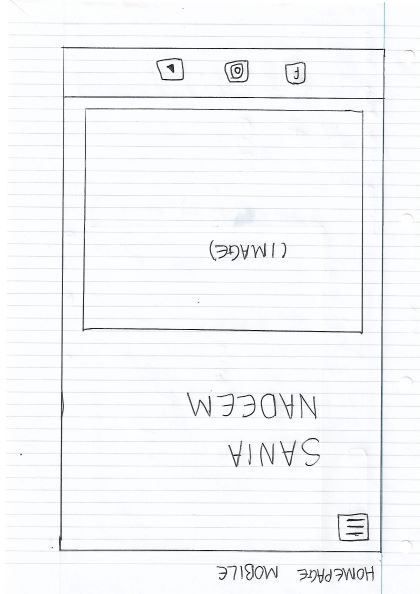 HOMEPAGE MOBILE
SANIA
NADEEM
(IMAGE)
f